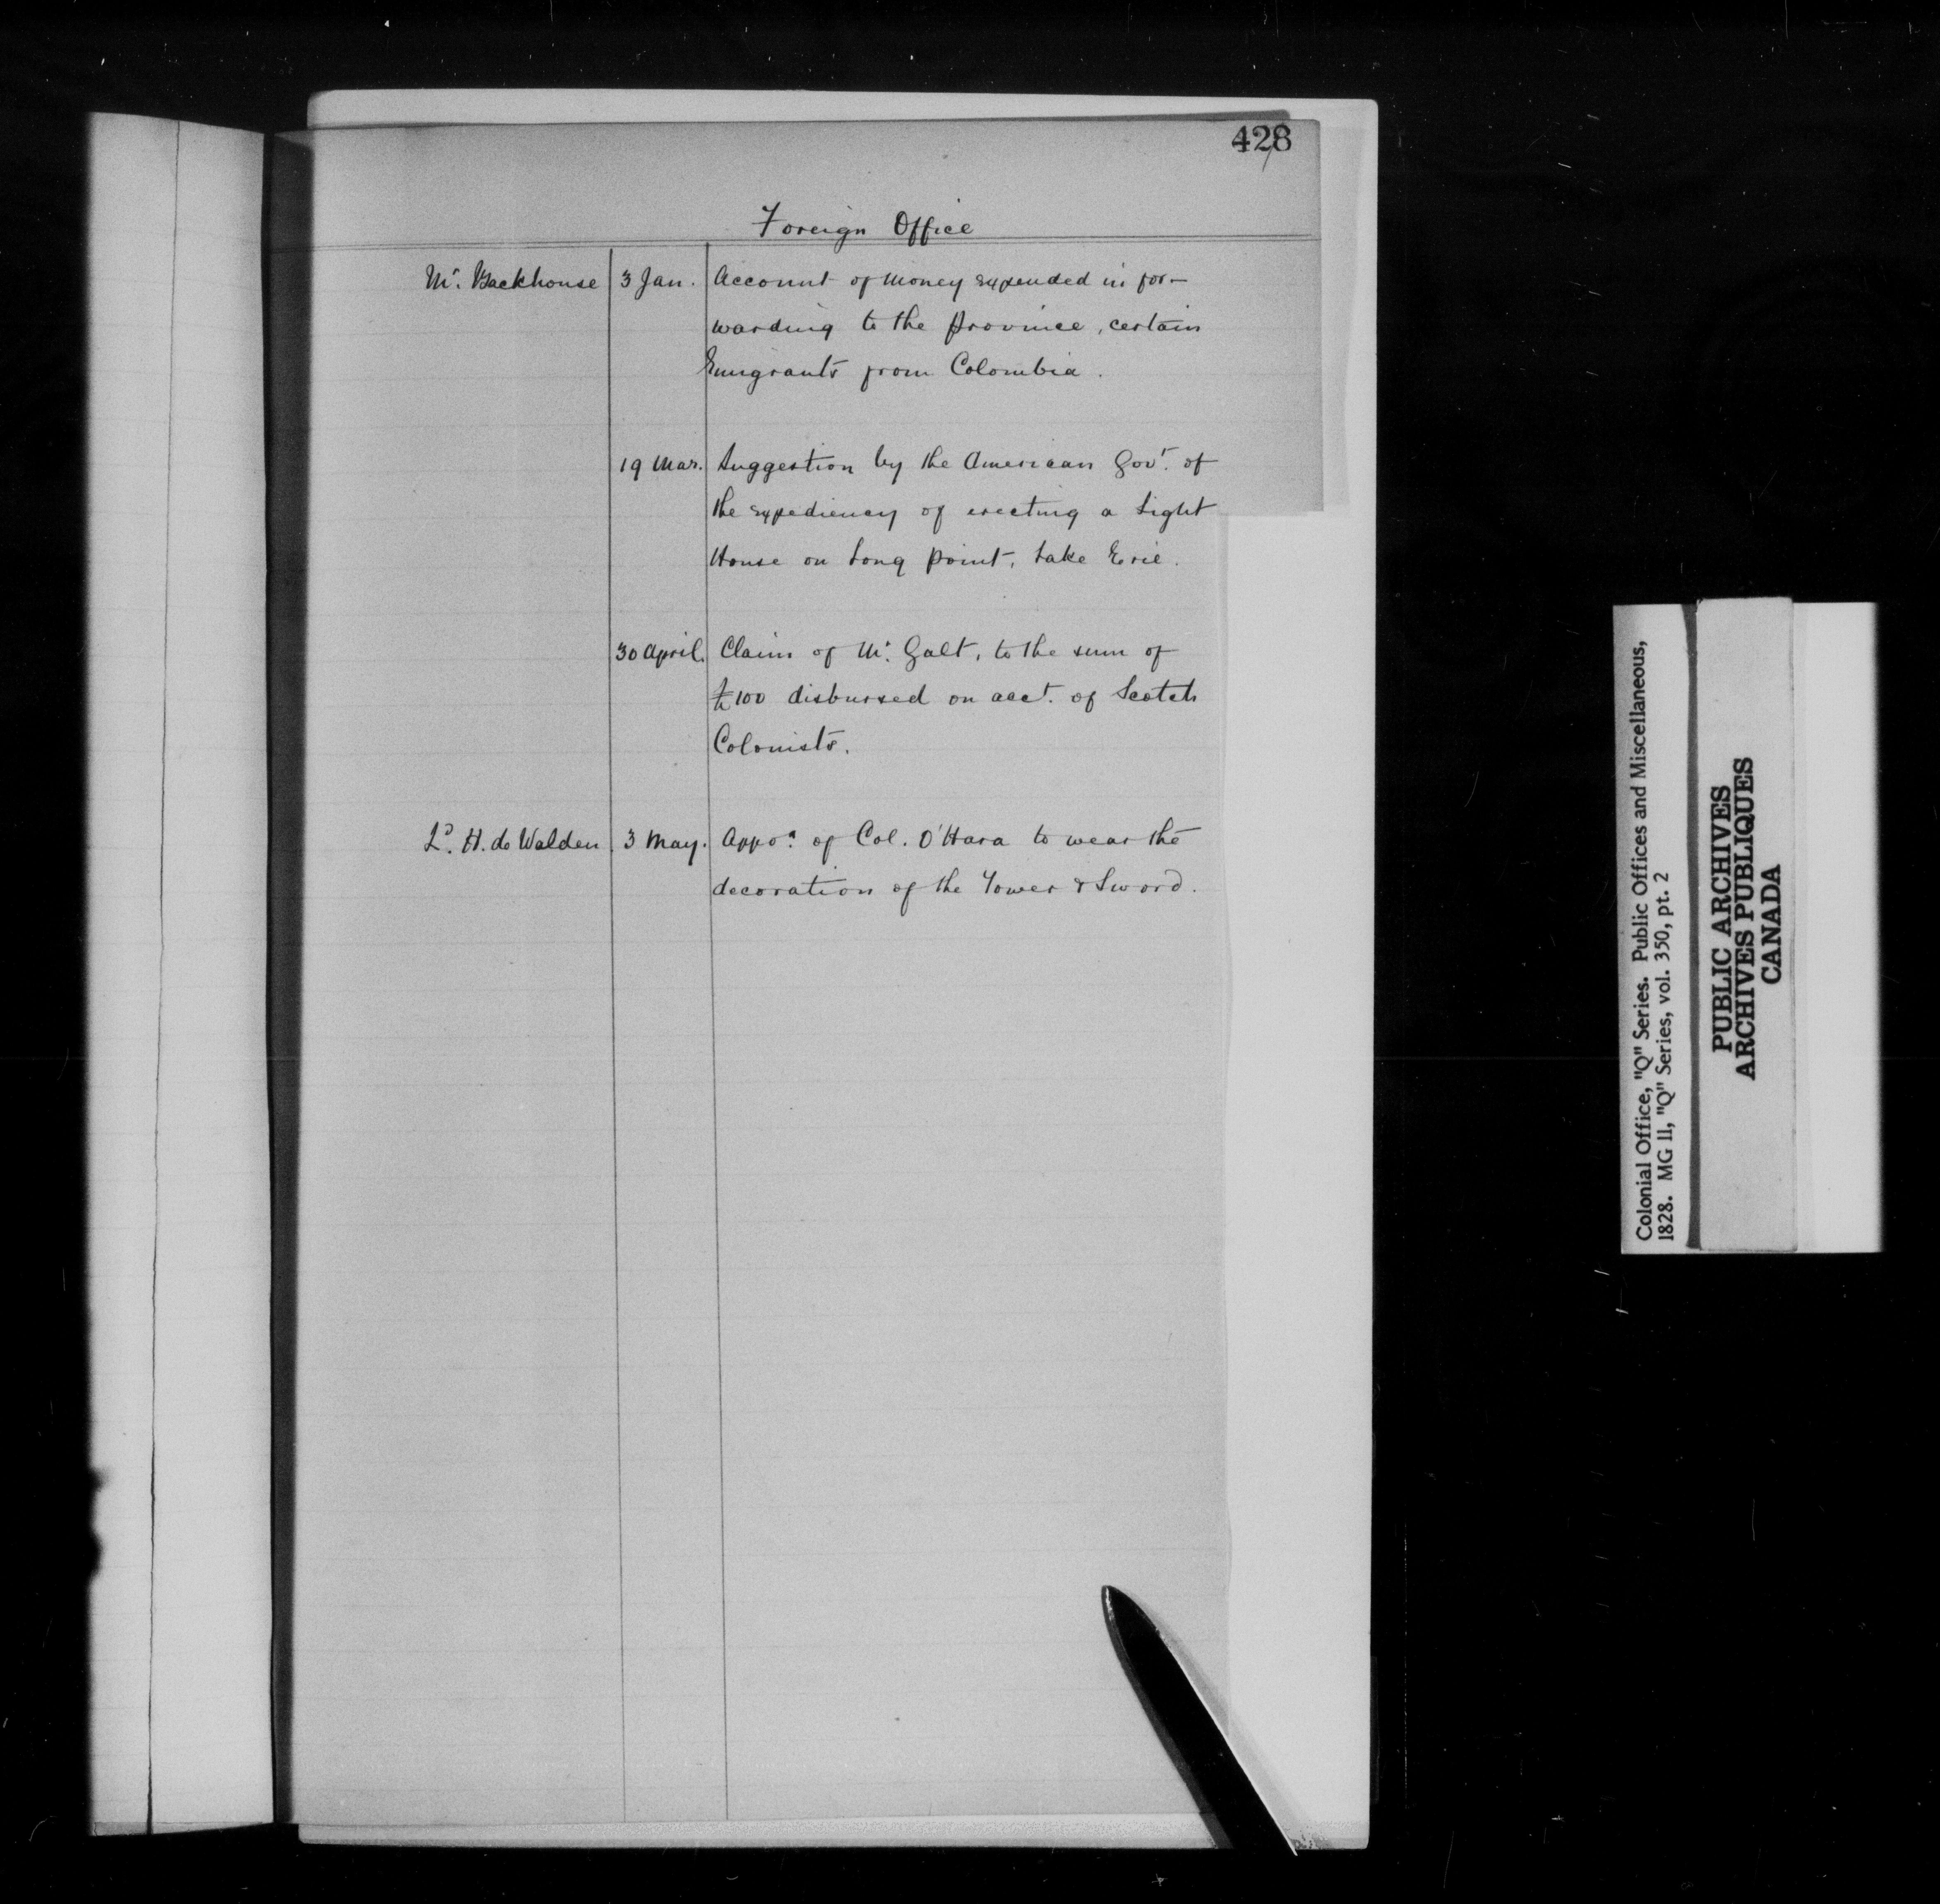 428
Foreign Office
Mr. Backhouse 3 Jan. Account of money expended in for-
warding to the province, certain
Emigrants from Colombia.
19 Mar. Suggestion by the American Govt. of
the expediency of erecting a Light
House on Long point, Lake Erie.
30 April. Claim of Mr. Galt, to the sum of
£100 disbursed on acct. of Scotch
Colonists.
Ld. H. de Walden 3 May. Appon. of Col. O'Hara to wear the
decoration of the Tower & Sword.
Colonial Office, "Q" Series. Public Offices and Miscellaneous,
1828. MG 11, "Q" Series, vol. 350, pt. 2
PUBLIC ARCHIVES
ARCHIVES PUBLIQUES
CANADA